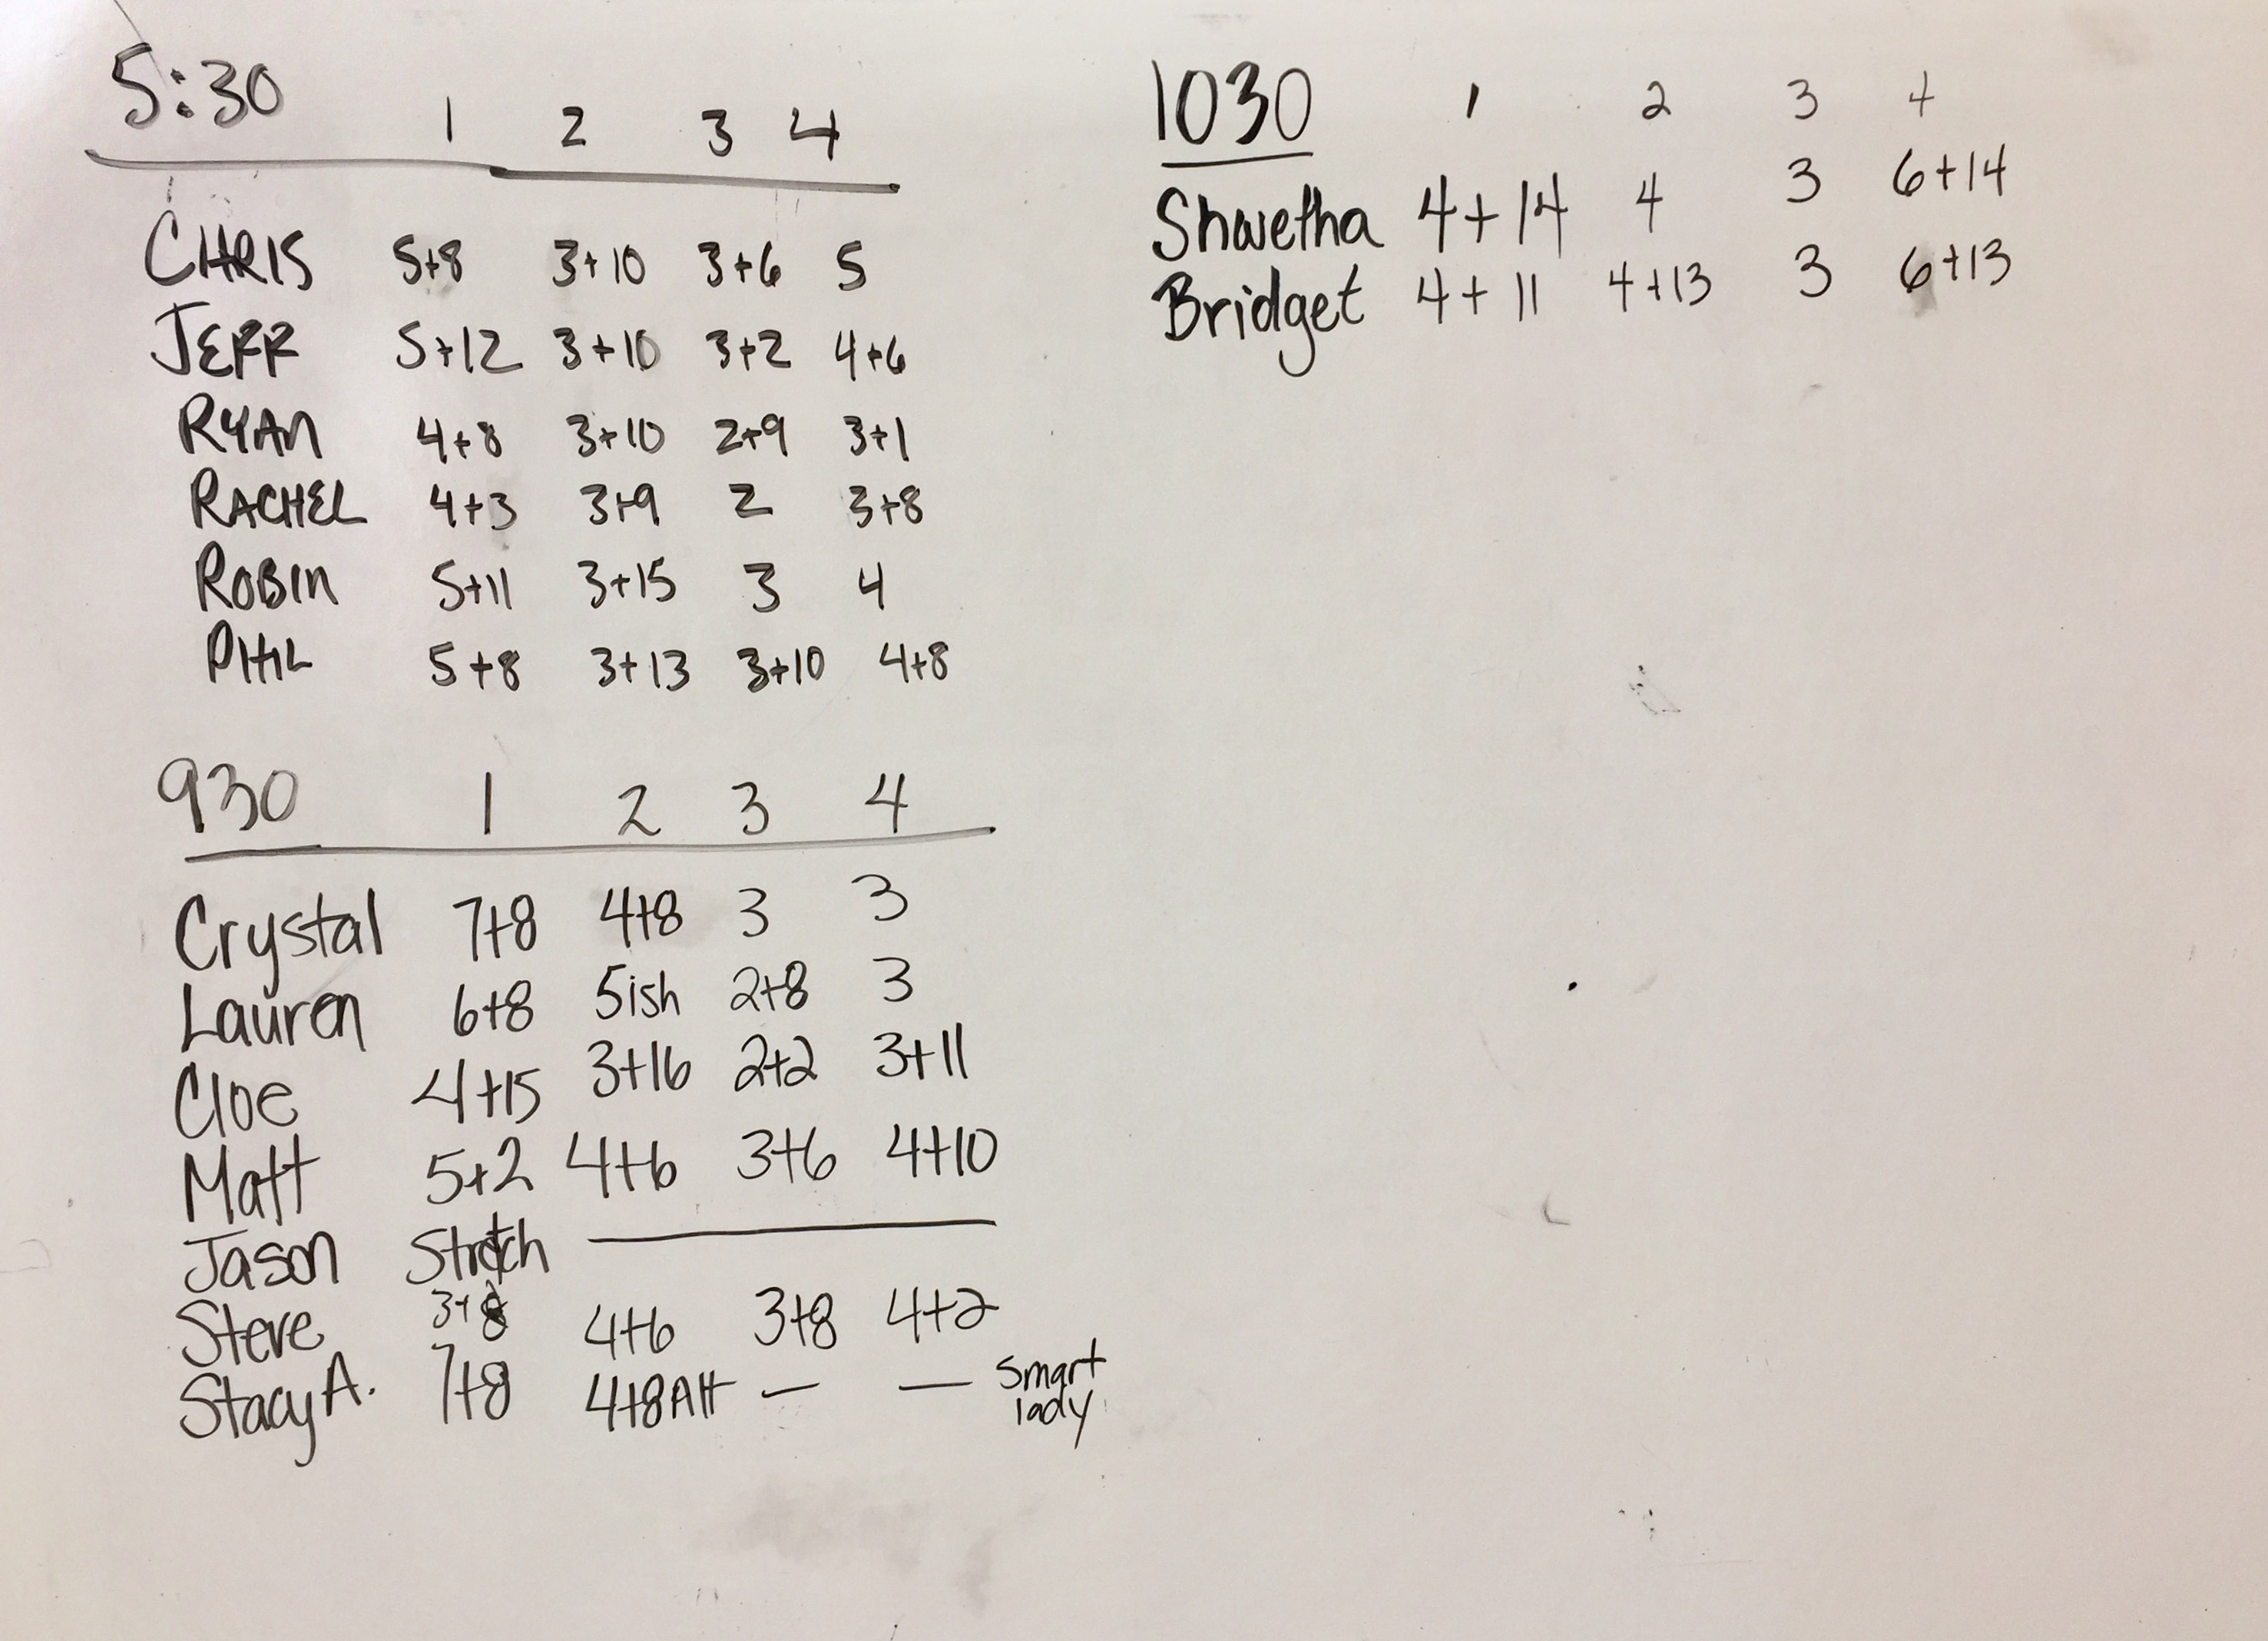 5:30 1 2 3 4
CHRIS 5+8 3+10 3+6 5
JEFF 5+12 3+10 3+2 4+6
RYAN 4+8 3+10 2+9 3+1
RACHEL 4+3 3+9 2 3+8
ROBIN 5+11 3+15 3 4
PHIL 5+8 3+13 3+10 4+8
930 1 2 3 4
Crystal 7+8 4+8 3 3
Lauren 6+8 5ish 2+8 3
Cloe 4+15 3+16 2+2 3+11
Matt 5+2 4+6 3+6 4+10
Jason Stretch —
Steve 3+8 4+6 3+8 4+2
Stacy A. 7+8 4+8 Alt — — Smart
lady
1030 1 2 3 4
Shwetha 4+14 4 3 6+14
Bridget 4+11 4+13 3 6+13